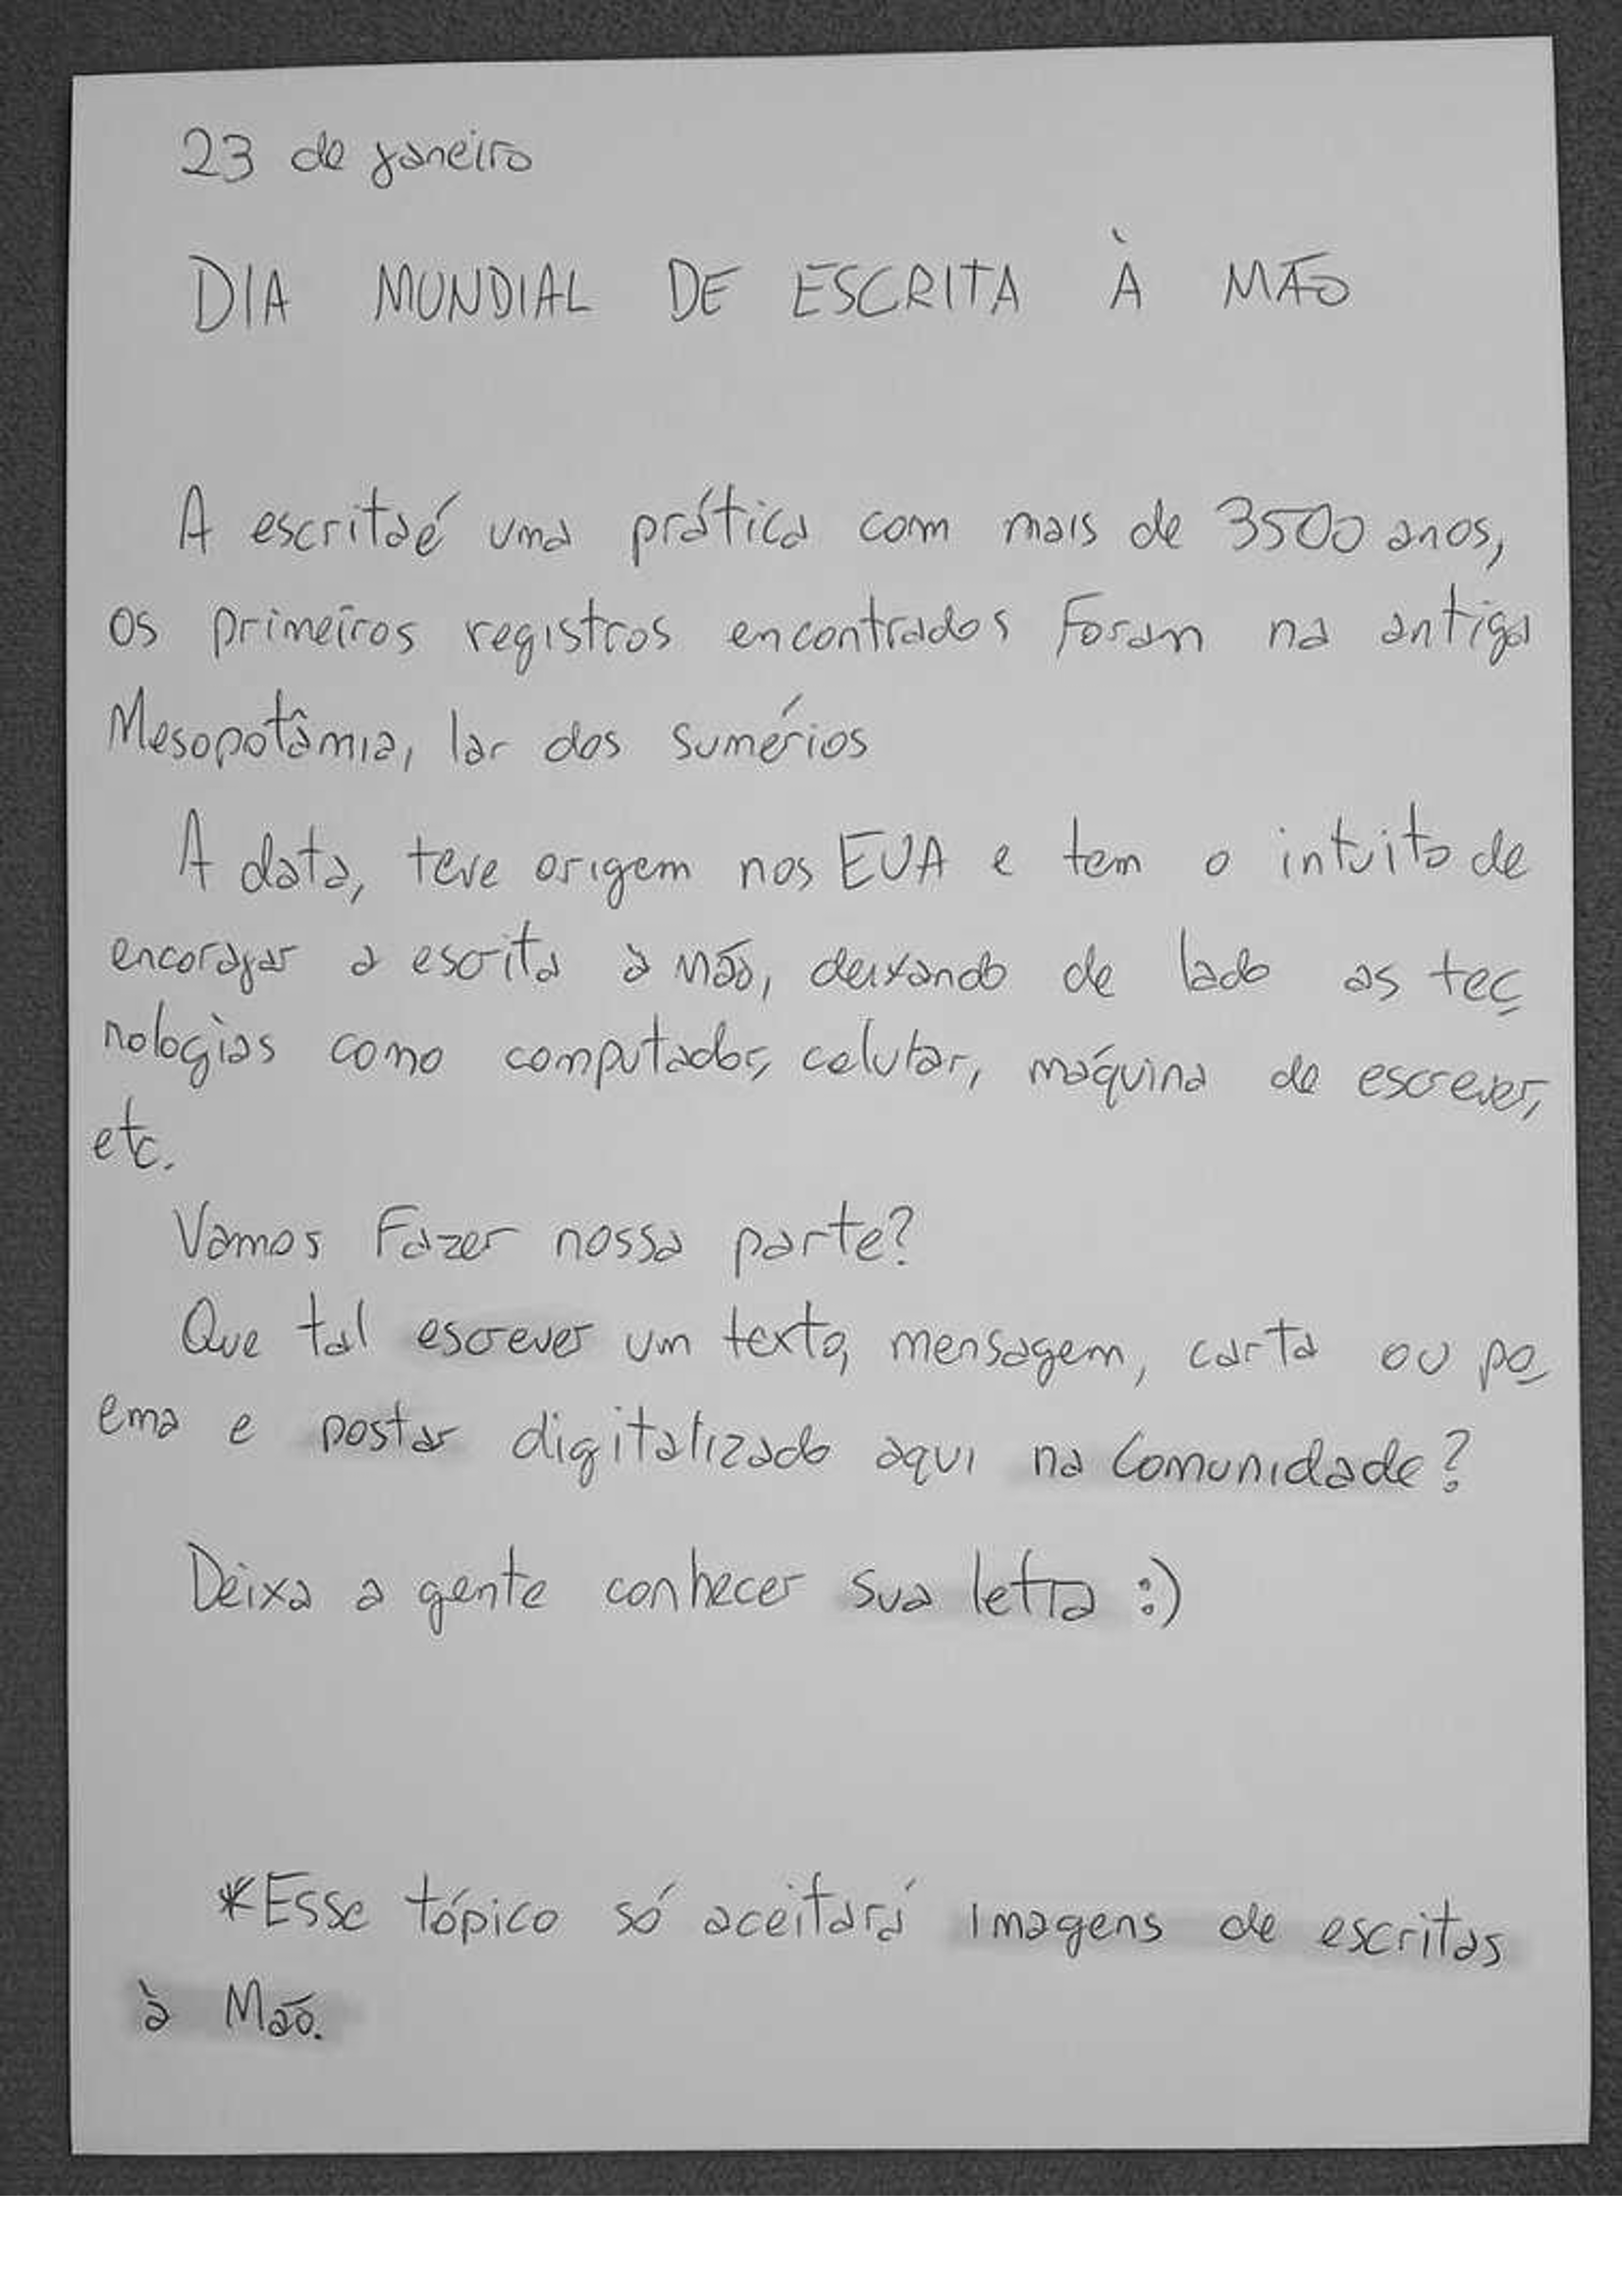 23 de janeiro
DIA MUNDIAL DE ESCRITA À MÃO
A escrita é uma prática com mais de 3500 anos,
os primeiros registros encontrados foram na antiga
Mesopotâmia, lar dos sumérios
A data, teve origem nos EUA e tem o intuito de
encorajar a escrita à mão, deixando de lado as tec
nologias como computador, celular, máquina de escrever,
etc.
Vamos fazer nossa parte?
Que tal escrever um texto, mensagem, carta ou po
ema e postar digitalizado aqui na Comunidade?
Deixa a gente conhecer sua letra :)
*Esse tópico só aceitará imagens de escritas
à Mão.